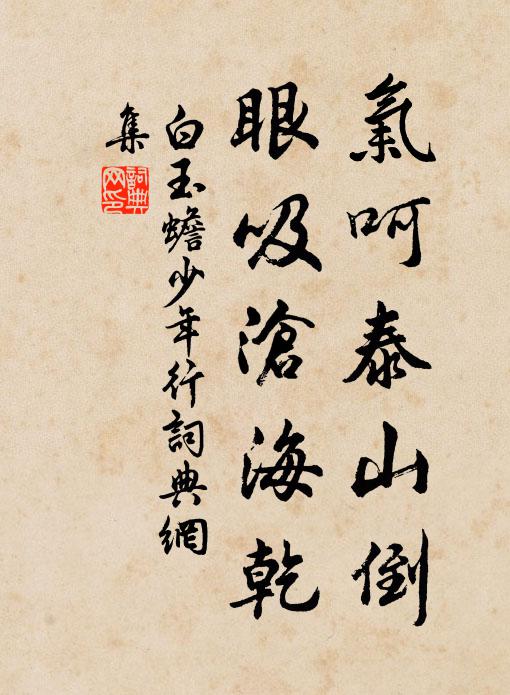 氣呵泰山倒
眼吸滄海乾
白玉蟾少年行詞典網
集
詞典
网印